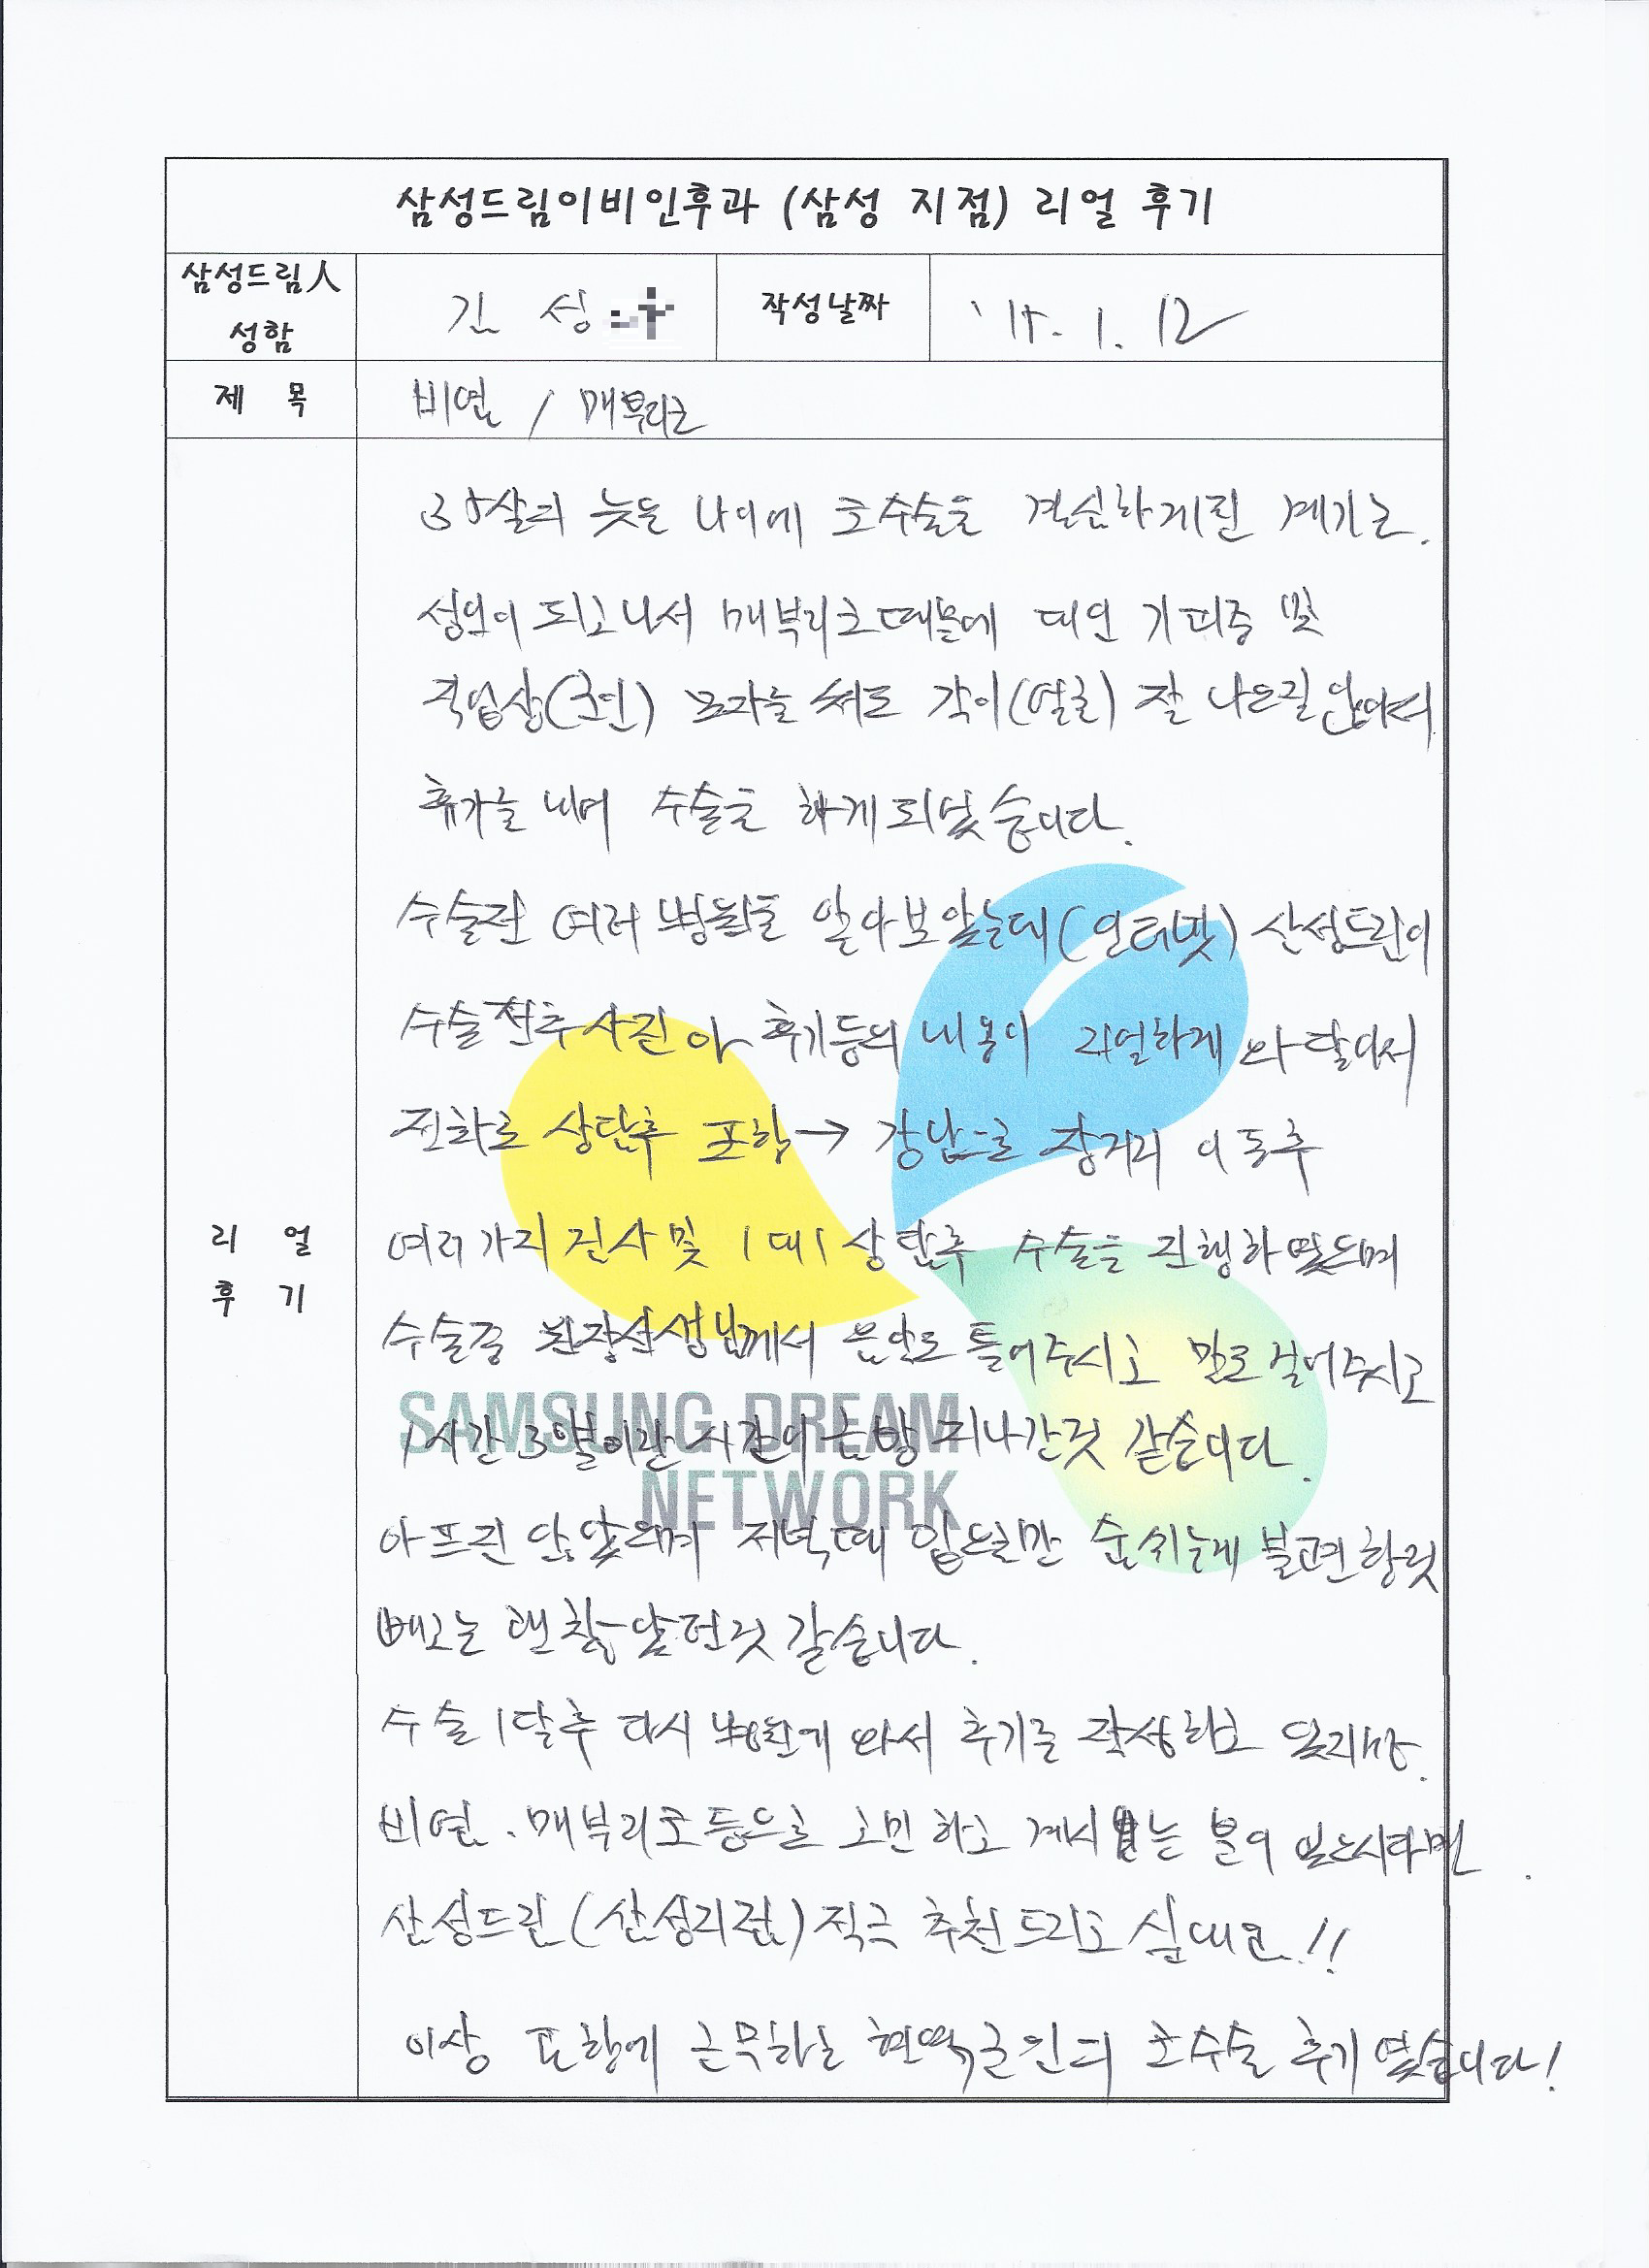 삼성드림이비인후과 (삼성 지점) 리얼 후기
삼성드림人
성함
김 성
작성날짜
'15. 1. 12
제 목
비염 / 매부리코
리 얼
후 기
35살의 늦은 나이에 코수술을 결심하게된 계기는.
성인이 되고나서 매부리코때문에 대인 기피증 및
직업상(군인) 모자를 써도 각이(얼굴) 잘 나오질 않아서
휴가를 내어 수술을 하게되었습니다.
수술전 여러 병원을 알아보았는데(인터넷) 삼성드림이
수술전후사진이나 후기등의 내용이 리얼하게 와닿아서
전화로 상담후 포항→ 강남으로 장거리 이동후
여러가지 검사 및 1대1 상담후 수술을 진행하였으며
수술중 원장선생님께서 음악도 틀어주시고 말도 걸어주시고
1시간 30분이란 시간이 금방 지나간것 같습니다.
아프진 않았으며 저녁때 입으로만 숨쉬는게 불편한것
빼고는 괜찮았던것 같습니다.
수술 1달후 다시 병원에 와서 후기를 작성하고 있지만.
비염. 매부리코 등으로 고민하고 계시는 분이 있으시다면.
삼성드림(삼성지점) 적극 추천드리고 싶네요.!!
이상 포항에 근무하는 현역군인의 코수술 후기 였습니다!
SAMSUNG DREAM
NETWORK